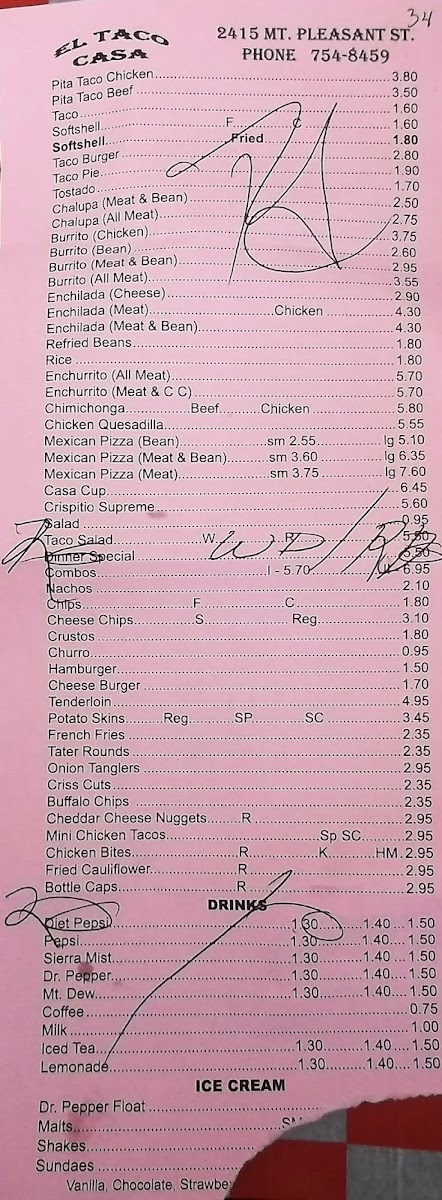 34
EL TACO CASA
2415 MT. PLEASANT ST.
PHONE 754-8459
Pita Taco Chicken 3.80
Pita Taco Beef 3.50
Taco 1.60
Softshell F. C 1.60
Softshell Fried 1.80
Taco Burger 2.80
Taco Pie 1.90
Tostado 1.70
Chalupa (Meat & Bean) 2.50
Chalupa (All Meat) 2.75
Burrito (Chicken) 3.75
Burrito (Bean) 2.60
Burrito (Meat & Bean) 2.95
Burrito (All Meat) 3.55
Enchilada (Cheese) 2.90
Enchilada (Meat) Chicken 4.30
Enchilada (Meat & Bean) 4.30
Refried Beans 1.80
Rice 1.80
Enchurrito (All Meat) 5.70
Enchurrito (Meat & C C) 5.70
Chimichonga Beef Chicken 5.80
Chicken Quesadilla 5.55
Mexican Pizza (Bean) sm 2.55 lg 5.10
Mexican Pizza (Meat & Bean) sm 3.60 lg 6.35
Mexican Pizza (Meat) sm 3.75 lg 7.60
Casa Cup 6.45
Crispitio Supreme 5.60
Salad 0.95
Taco Salad W R 5.50
Dinner Special WD/
Combos I - 5.70 6.95
Nachos 2.10
Chips F C 1.80
Cheese Chips S Reg. 3.10
Crustos 1.80
Churro 0.95
Hamburger 1.50
Cheese Burger 1.70
Tenderloin 4.95
Potato Skins Reg SP SC 3.45
French Fries 2.35
Tater Rounds 2.35
Onion Tanglers 2.95
Criss Cuts 2.35
Buffalo Chips 2.35
Cheddar Cheese Nuggets R 2.95
Mini Chicken Tacos Sp SC 2.95
Chicken Bites R K HM 2.95
Fried Cauliflower R 2.95
Bottle Caps R 2.95
DRINKS
2 Diet Pepsi 1.30 1.40 1.50
Pepsi 1.30 1.40 1.50
Sierra Mist 1.30 1.40 1.50
Dr. Pepper 1.30 1.40 1.50
Mt. Dew 1.30 1.40 1.50
Coffee 0.75
Milk 1.00
Iced Tea 1.30 1.40 1.50
Lemonade 1.30 1.40 1.50
ICE CREAM
Dr. Pepper Float
Malts
Shakes
Sundaes
Vanilla, Chocolate, Strawbe